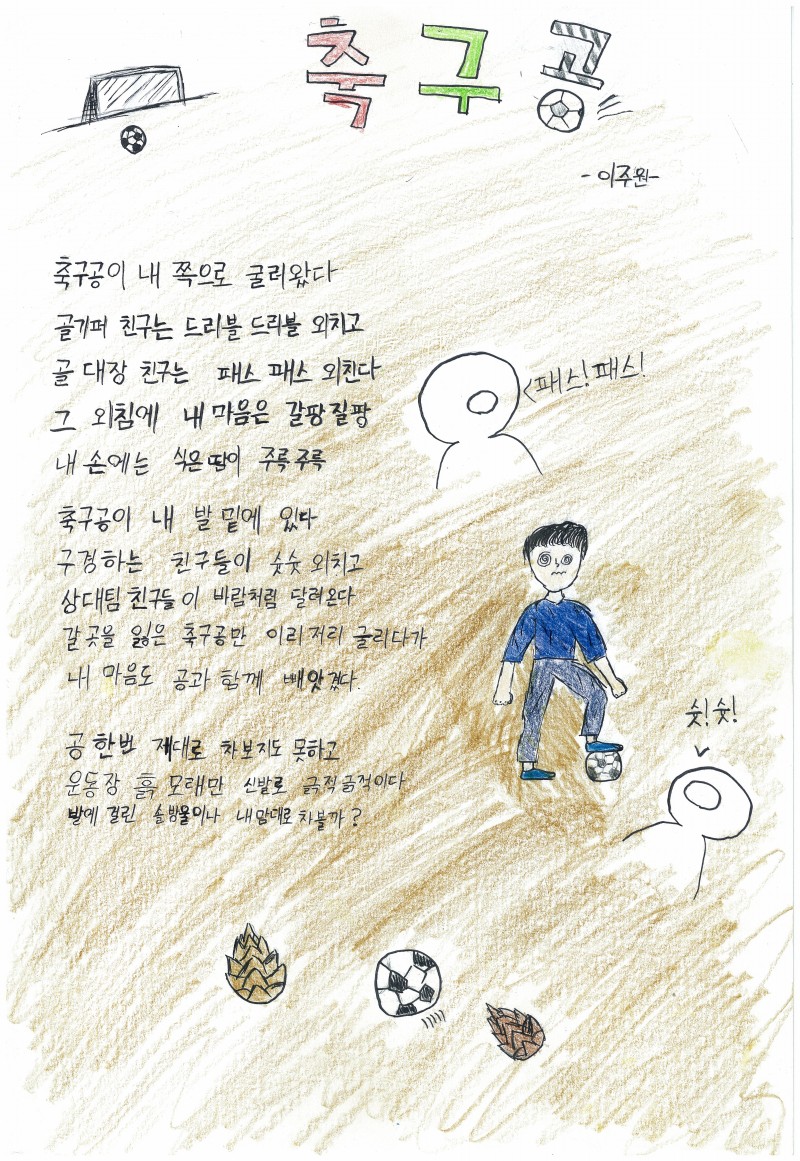 축구공
-이주원-
축구공이 내 쪽으로 굴러왔다
골키퍼 친구는 드리블 드리블 외치고
골 대장 친구는 패스 패스 외친다
그 외침에 내 마음은 갈팡질팡
내 손에는 식은땀이 주륵주륵
패스! 패스!
축구공이 내 발 밑에 있다
구경하는 친구들이 슛슛 외치고
상대팀 친구들이 바람처럼 달려온다
갈 곳을 잃은 축구공만 이리저리 굴리다가
내 마음도 공과 함께 빼앗겼다.
슛! 슛!
공 한번 제대로 차보지도 못하고
운동장 흙 모래만 신발로 긁적긁적이다
발에 걸린 솔방울이나 내맘대로 차볼까?